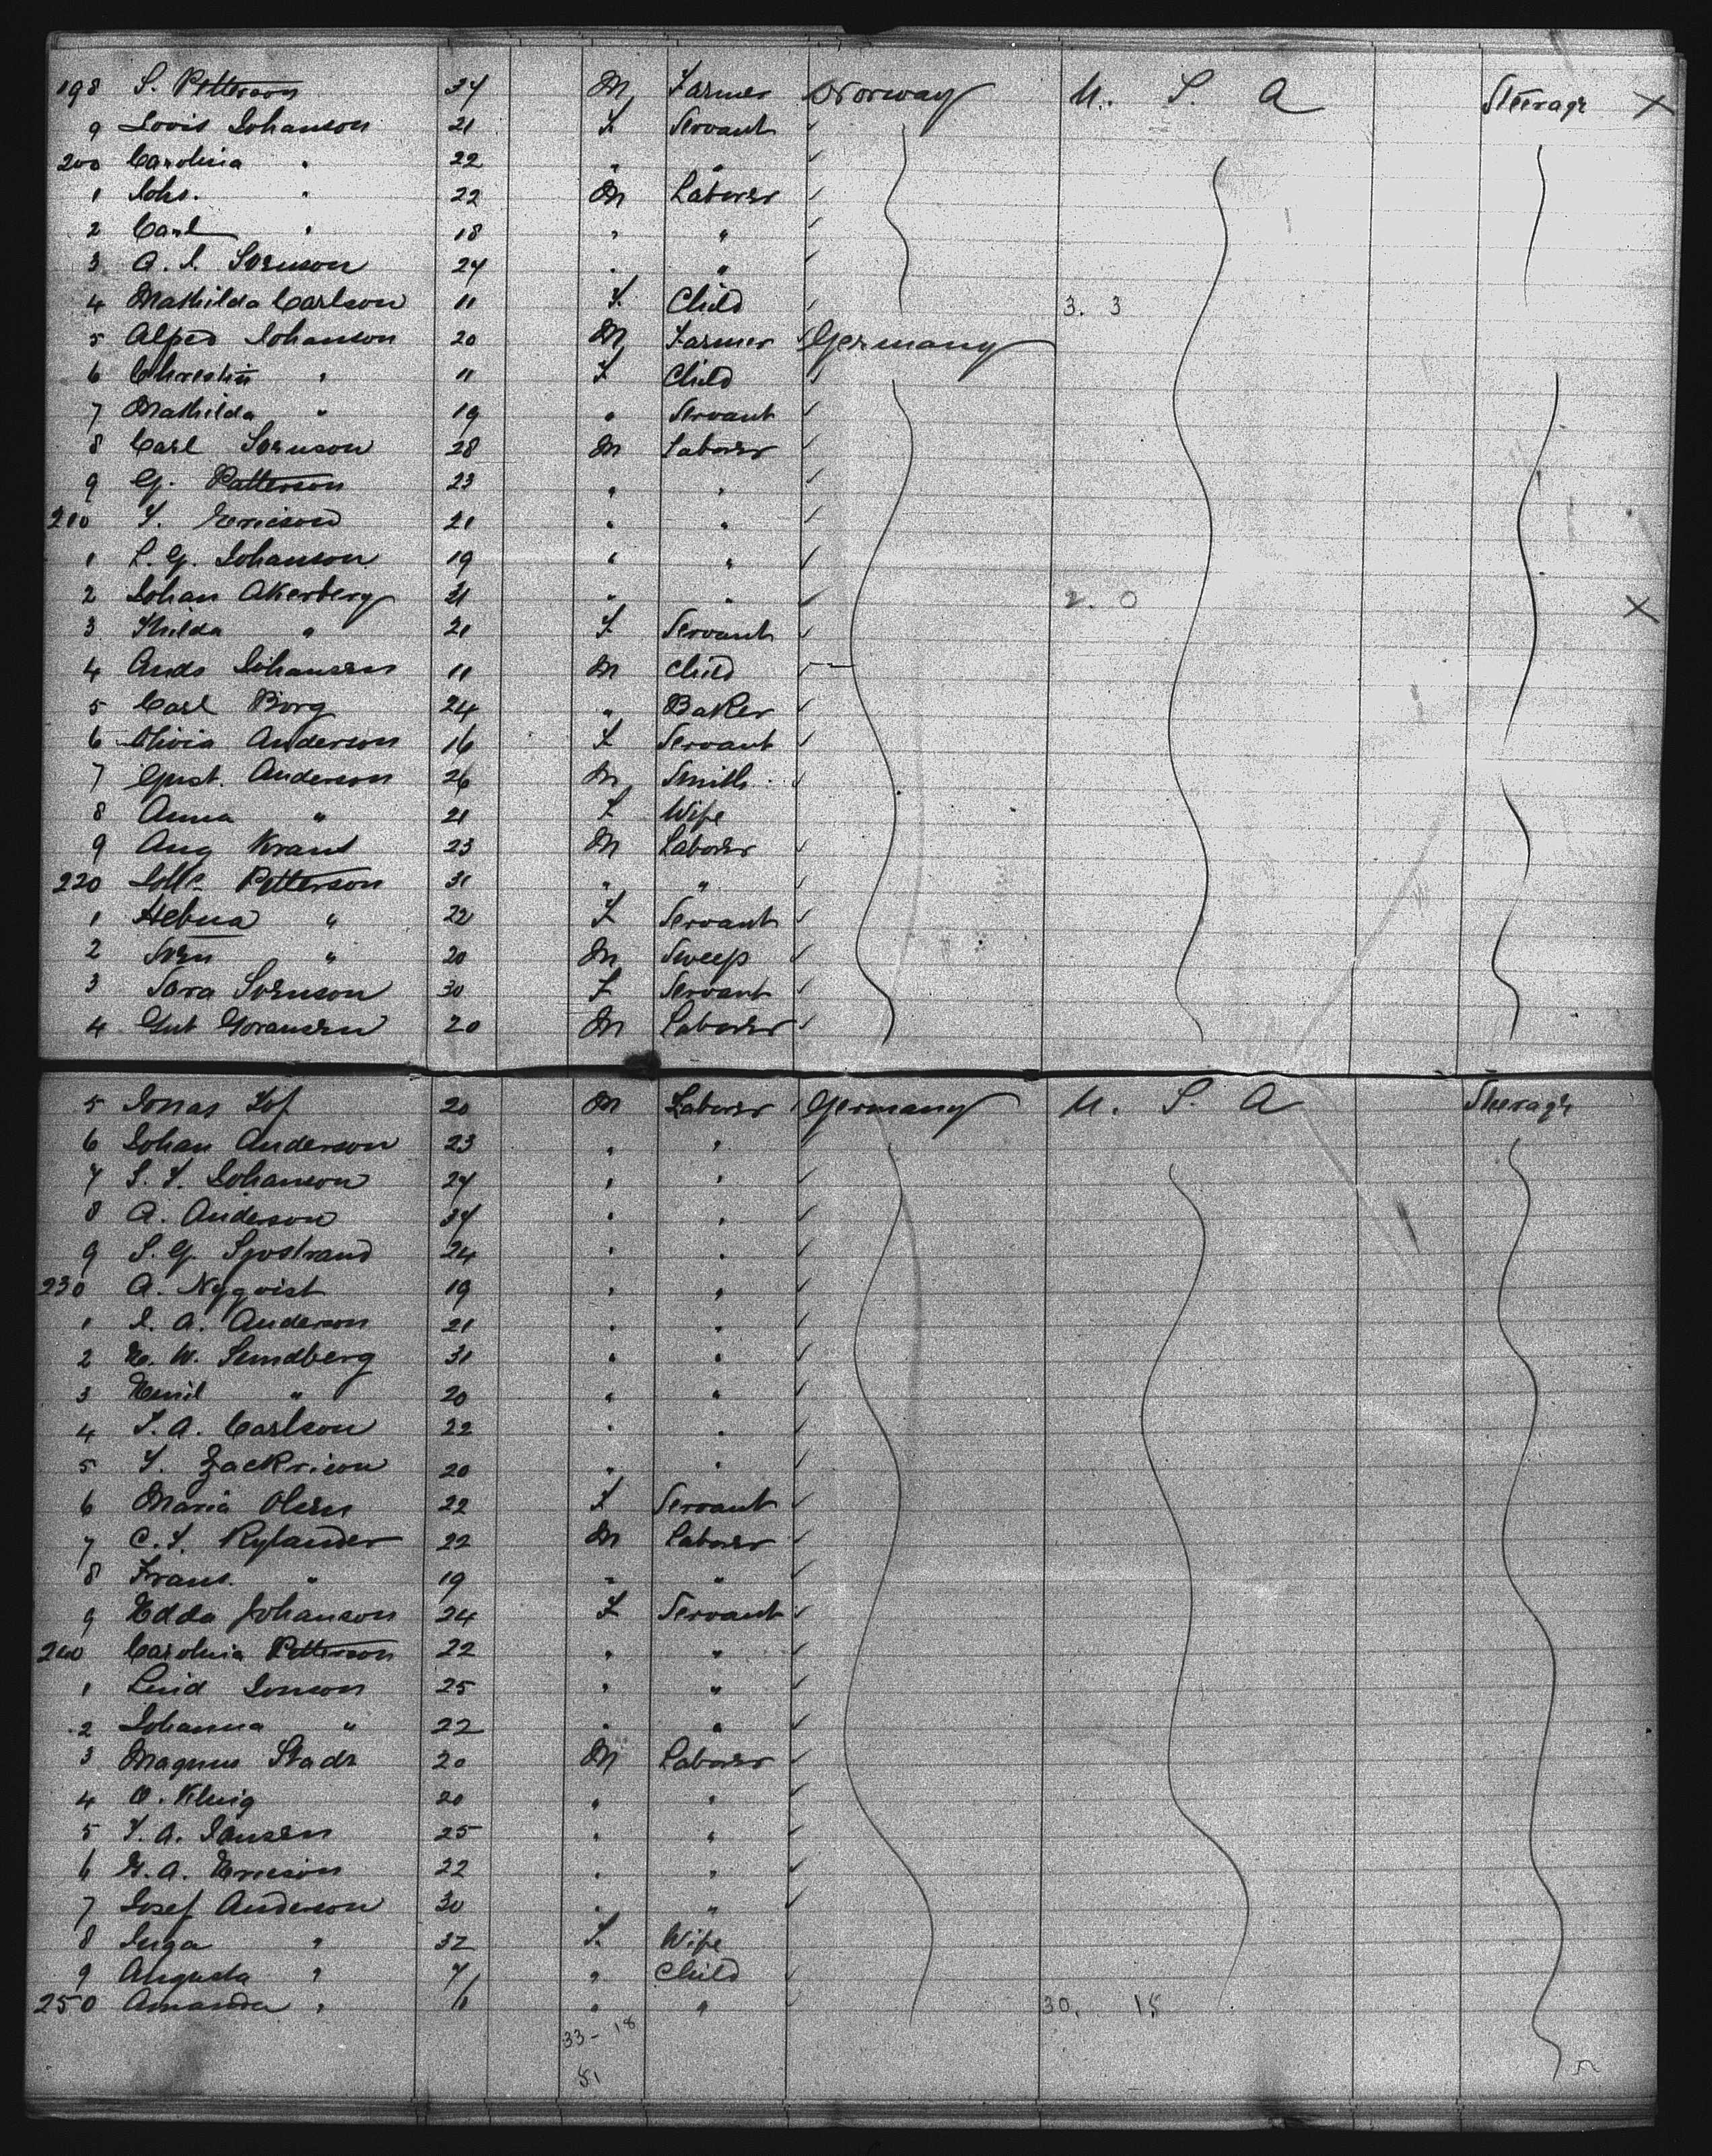 198 S. Petterson 34 M Farmer Norway U. S. A Steerage X
9 Lovis Johanson 21 F Servant ✓
200 Carolina " 22 " " ✓
1 Johs. " 22 M Laborer ✓
2 Carl " 18 " " ✓
3 A. J. Svenson 24 " " ✓
4 Mathilda Carlson 11 F. Child ✓ 3. 3
5 Alfred Johanson 20 M Farmer ✓ Germany
6 Christin " 11 F Child ✓
7 Mathilda " 19 " Servant ✓
8 Carl Svenson 28 M Laborer ✓
9 G. Patterson 23 " " ✓
210 F. Ericson 21 " " ✓
1 L. G. Johanson 19 " " ✓
2 Johan Akerberg 31 " " ✓ 2. 0 X
3 Thilda " 21 F Servant ✓
4 Ands Johansen 11 M Child
5 Carl Borg 24 " Baker ✓
6 Olivia Anderson 16 F Servant ✓
7 Gust. Anderson 26 M Smith ✓
8 Anna " 21 F Wife
9 Aug Krans 23 M Laborer ✓
220 Petterson 31 " " ✓
1 " 22 F Servant ✓
2 Sven " 20 M Sweep ✓
3 Sara Svenson 30 F Servant ✓
4 Goransen 20 M Laborer ✓
5 Jonas Lof 20 M Laborer Germany U. S. A Steerage
6 Johan Anderson 23 " " ✓
7 S. F. Johanson 24 " " ✓
8 A. Anderson 34 " " ✓
9 S. G. Sjostrand 24 " " ✓
230 A. Nyqvist 19 " " ✓
1 J. A. Anderson 21 " " ✓
2 E. W. Sundberg 31 " " ✓
3 Emil " 20 " " ✓
4 F. A. Carlson 22 " " ✓
5 F. Zackrison 20 " " ✓
6 Maria Olsen 22 F Servant ✓
7 C. F. Rylander 22 M Laborer ✓
8 Frans. " 19 " " ✓
9 Edda Johanson 24 F Servant ✓
240 Carolina Petterson 22 " " ✓
1 Lind Jonson 25 " " ✓
2 Johanna " 22 " " ✓
3 Magnus Stade 20 M Laborer ✓
4 O. Klinig 20 " " ✓
5 F. A. Jansen 25 " " ✓
6 G. A. Ericson 22 " " ✓
7 Josef Anderson 30 " " ✓
8 Inga " 32 F. Wife
9 Augusta " 7/ " Child ✓
250 Amanda " " " ✓ 30. 15
33 - 18
51